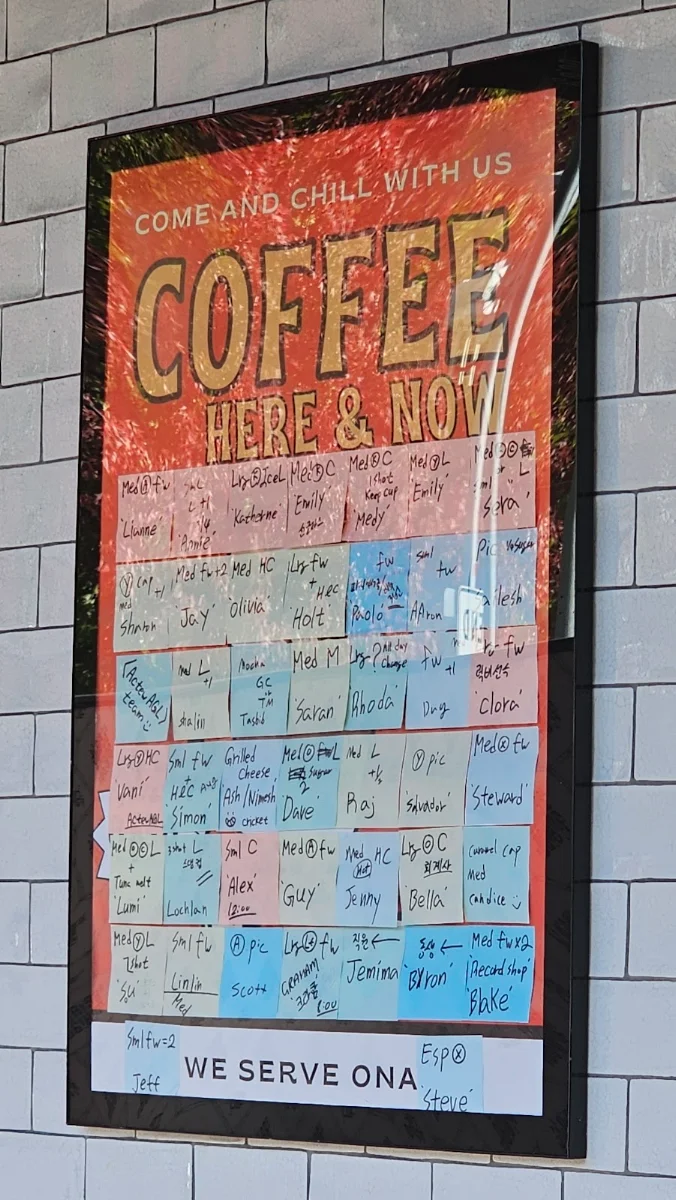 COME AND CHILL WITH US
COFFEE
HERE & NOW
Med Ⓐ fw
'Lianne'
Sml
L +1
1/4
'Annie'
Lrg Ice L
'Katherine'
Med C
'Emily'
Med C
1 shot
Keep cup
'Medy'
Med Ⓨ L
'Emily'
Med
L
'Sera'
Ⓨ cap
+1
med
Sharon
Med fw+2
'Jay'
Med HC
'Olivia'
Lrg fw
+ H&C
'Holt'
fw
Paolo
sml
fw
AAron
Pic No Sugar
ailesh
(Acter AGL)
team
med L
+1
shalin
Mocha
GC
TM
Tashid
Med M
'Saran'
Lrg ? All day
change
Rhoda
fw
+1
Dug
fw
럭비선수
'Clora'
Lrg Ⓨ HC
'Vani'
ActerAGL
Sml fw
+
H&C
'Simon'
Grilled
cheese
Ash/Nimesh
cricket
Med L
Sugar
2
Dave
Med L
+1/2
Raj
Ⓨ pic
'Salvador'
Med Ⓧ fw
'Steward'
Med L
+
Tuna melt
'Lumi'
3 shot L
Lochlan
Sml C
'Alex'
12:00
Med Ⓐ fw
'Guy'
Med HC
Hot
Jenny
Lrg C
회계사
'Bella'
caramel cap
Med
candice
Med Ⓨ L
1 shot
'Su'
Sml fw
Linlin
Med
Ⓐ pic
Scott
Lrg fw
GRAHAM
1:00
직원 ←
Jemima
동생 ←
'Byron'
Med fw x2
Record shop
'Blake'
Sml fw=2
Jeff
WE SERVE ONA
Esp Ⓧ
'Steve'